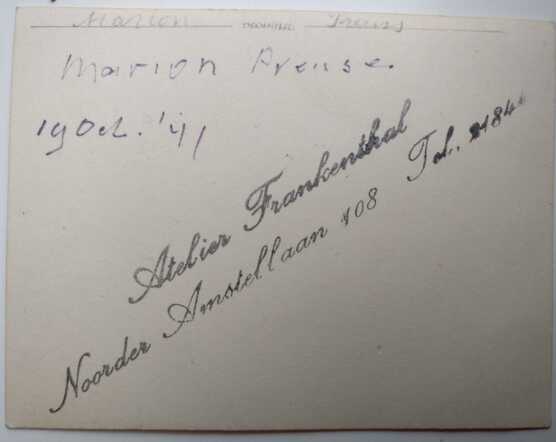 Marion Preuss
Marion Preuse.
19 Oct. '41
Atelier Frankenthal
Noorder Amstellaan 108 Tel.